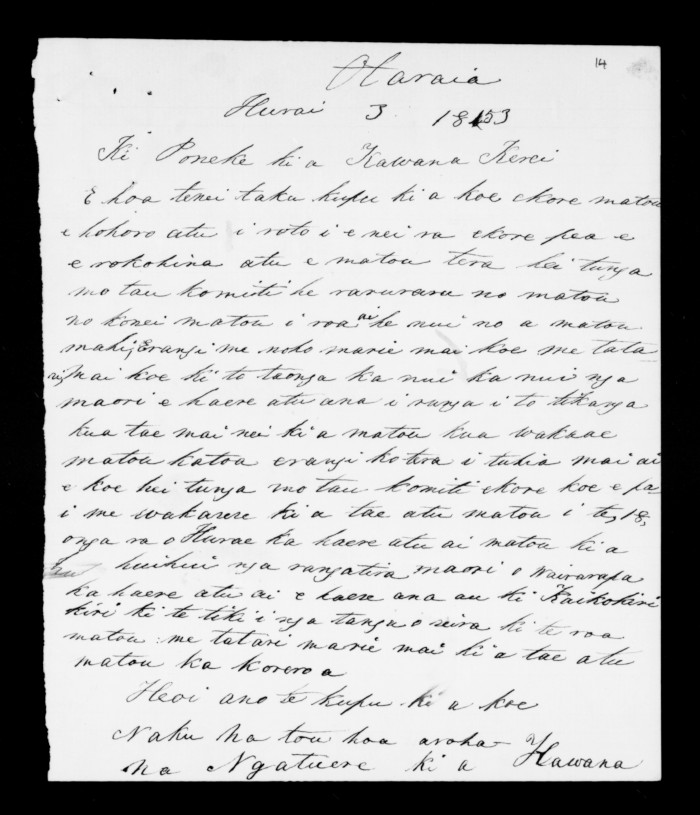 14
Otaraia
Hurai 3 1853
Ki Poneke ki a Kawana Kerei
E hoa tenei taku kupu ki a koe ekore matou
e hohoro atu i roto i e nei ra ekore pea e
e rokohina atu e matou tera hei tunga
mo tau komiti he raruraru no matou
no konei matou i roa ai he nui no a matou
mahi, Erangi me noho marie mai koe me tata
ri, mai koe ki to taonga ka nui ka nui nga
maori e haere atu ana i runga i to tikanga
kua tae mai nei ki a matou kua wakaae
matou katoa erangi ko tera i tuhia mai ai
e koe hei tunga mo tau komiti ekore koe e pa
i me wakarere ki a tae atu matou i te, 18,
onga ra o Hurae ka haere atu ai matou ki a
huihui nga rangatira maori o Wairarapa
ka haere atu ai e haere ana au ki Kaikokiri
kiri ki te tiki i nga tangata o reira ki te roa
matou : me tatari marie mai ki a tae atu
matou ka korero a
Heoi ano te kupu ki a koe
Naku na tou hoa aroha
na Ngatuere ki a Kawana